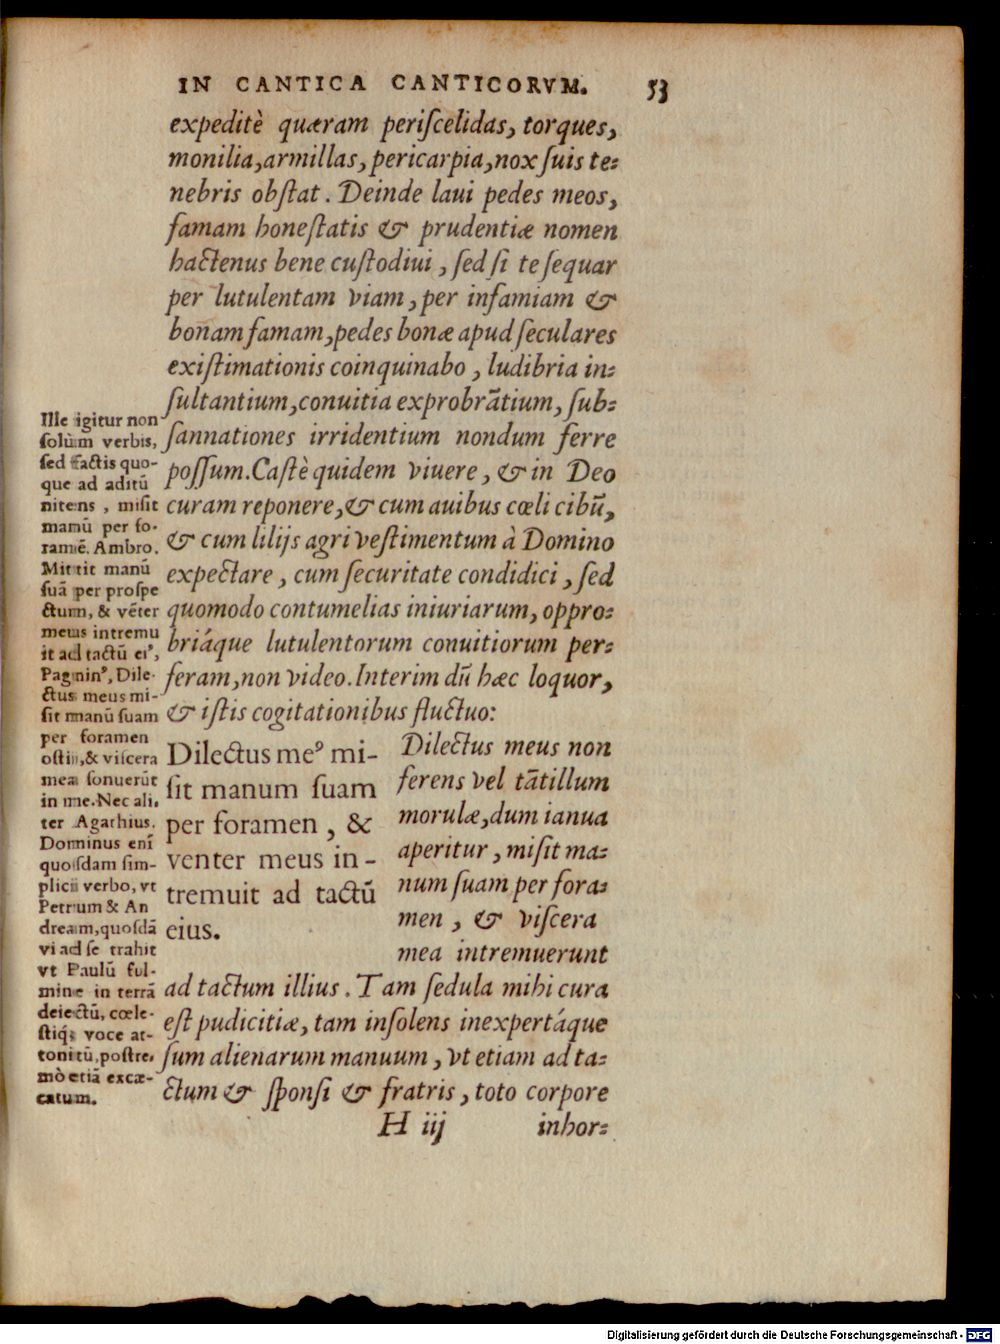 IN CANTICA CANTICORVM. 53
expeditè quæram periſcelidas, torques,
monilia, armillas, pericarpia, nox ſuis te⸗
nebris obſtat. Deinde laui pedes meos,
famam honeſtatis & prudentiæ nomen
hactenus bene cuſtodiui, ſed ſi te ſequar
per lutulentam viam, per infamiam &
bonam famam, pedes bonæ apud ſeculares
exiſtimationis coinquinabo, ludibria in⸗
ſultantium, conuitia exprobrātium, ſub⸗
ſannationes irridentium nondum ferre
poſſum. Caſtè quidem viuere, & in Deo
curam reponere, & cum auibus cœli cibū,
& cum lilijs agri veſtimentum à Domino
expectare, cum ſecuritate condidici, ſed
quomodo contumelias iniuriarum, oppro⸗
briáque lutulentorum conuitiorum per⸗
feram, non video. Interim dū hæc loquor,
& iſtis cogitationibus fluctuo:
Ille igitur non
ſolùm verbis,
ſed factis quo-
que ad aditū
nitens, miſit
manū per fo-
ramē. Ambro.
Mittit manū
ſuā per proſpe
ctum, & vēter
meus intremu
it ad tactū eiꝰ,
Pagninꝰ, Dile-
ctus meus mi-
ſit manū ſuam
per foramen
oſtii, & viſcera
mea ſonuerūt
in me. Nec ali-
ter Agathius.
Dominus enī
quoſdam ſim-
plici verbo, vt
Petrum & An
dream, quoſdā
vi ad ſe trahit
vt Paulū ful-
mine in terrā
deiectū, cœle-
ſtiq; voce at-
tonitū, poſtre-
mò etiā excæ-
catum.
Dilectus meꝰ mi-
ſit manum ſuam
per foramen, &
venter meus in-
tremuit ad tactū
eius.
Dilectus meus non
ferens vel tātillum
morulæ, dum ianua
aperitur, miſit ma⸗
num ſuam per fora⸗
men, & viſcera
mea intremuerunt
ad tactum illius. Tam ſedula mihi cura
eſt pudicitiæ, tam inſolens inexpertáque
ſum alienarum manuum, vt etiam ad ta⸗
ctum & ſponſi & fratris, toto corpore
H iij inhor⸗
Digitalisierung gefördert durch die Deutsche Forschungsgemeinschaft - DFG